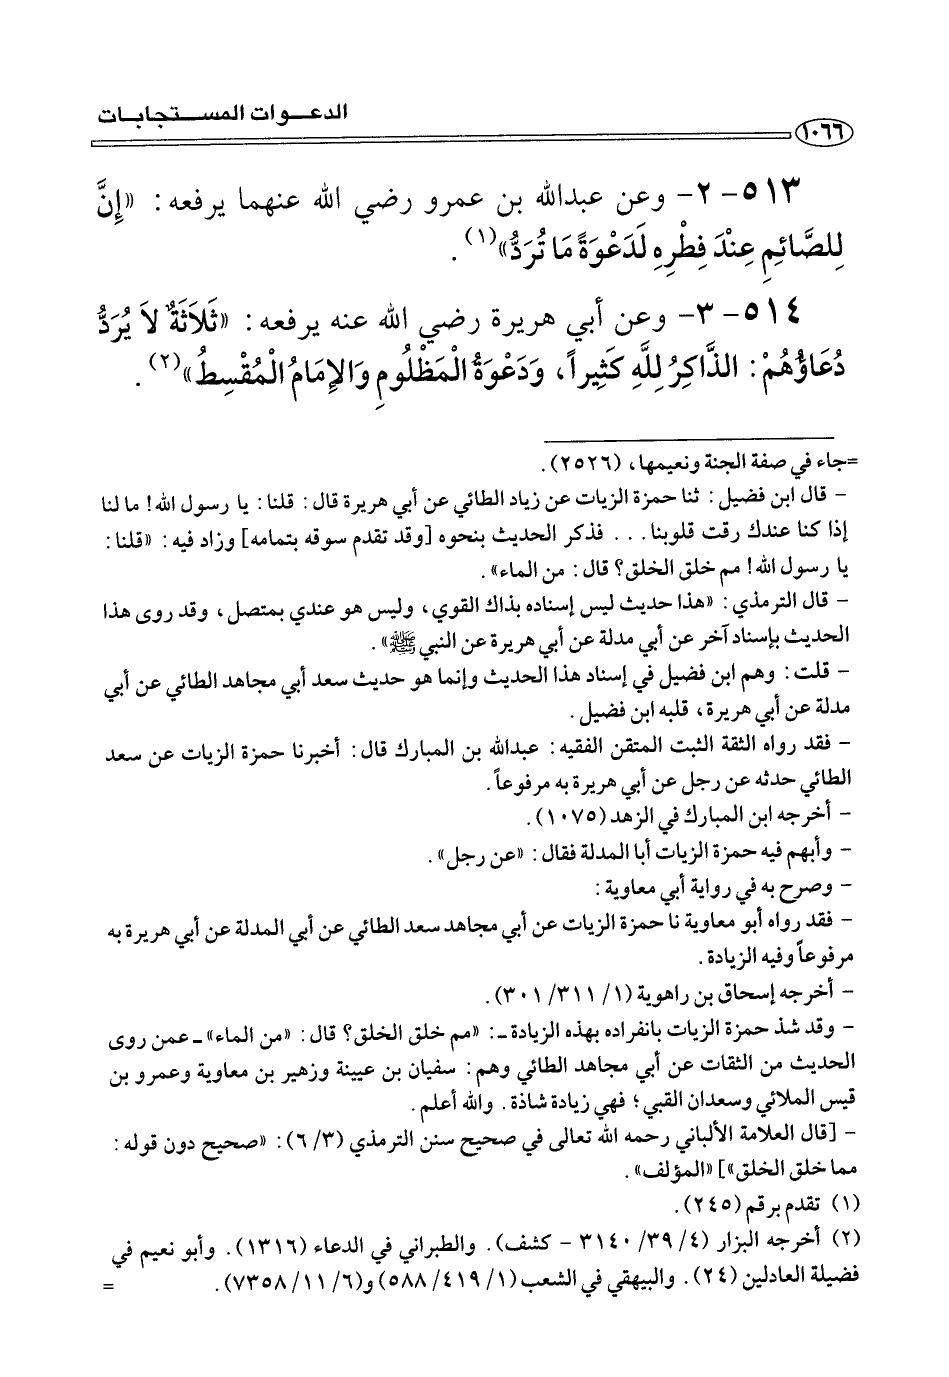 الدعـــوات المســـتجابـات
١٠٦٦
٥١٣- ٢- وعن عبدالله بن عمرو رضي الله عنهما يرفعه: «إِنَّ
لِلصَّائِمِ عِنْدَ فِطْرِهِ لَدَعْوَةً مَا تُرَدُّ»(١).
٥١٤- ٣- وعن أبي هريرة رضي الله عنه يرفعه: «ثَلَاثَةٌ لاَ يُرَدُّ
دُعَاؤُهُمْ: الذَّاكِرُ لِلَّهِ كَثِيراً، وَدَعْوَةُ الْمَظْلُومِ وَالإِمَامُ الْمُقْسِطُ»(٢).
=جاء في صفة الجنة ونعيمها، (٢٥٢٦).
- قال ابن فضيل: ثنا حمزة الزيات عن زياد الطائي عن أبي هريرة قال: قلنا: يا رسول الله! ما لنا
إذا كنا عندك رقت قلوبنا... فذكر الحديث بنحوه [وقد تقدم سوقه بتمامه] وزاد فيه: «قلنا:
يا رسول الله! مم خلق الخلق؟ قال: من الماء».
- قال الترمذي: «هذا حديث ليس إسناده بذاك القوي، وليس هو عندي بمتصل، وقد روى هذا
الحديث بإسناد آخر عن أبي مدلة عن أبي هريرة عن النبي ﷺ».
- قلت: وهم ابن فضيل في إسناد هذا الحديث وإنما هو حديث سعد أبي مجاهد الطائي عن أبي
مدلة عن أبي هريرة، قلبه ابن فضيل.
- فقد رواه الثقة الثبت المتقن الفقيه: عبدالله بن المبارك قال: أخبرنا حمزة الزيات عن سعد
الطائي حدثه عن رجل عن أبي هريرة به مرفوعاً.
- أخرجه ابن المبارك في الزهد (١٠٧٥).
- وأبهم فيه حمزة الزيات أبا المدلة فقال: «عن رجل».
- وصرح به في رواية أبي معاوية:
- فقد رواه أبو معاوية نا حمزة الزيات عن أبي مجاهد سعد الطائي عن أبي المدلة عن أبي هريرة به
مرفوعاً وفيه الزيادة.
- أخرجه إسحاق بن راهوية (١/ ٣١١/ ٣٠١).
- وقد شذ حمزة الزيات بانفراده بهذه الزيادة ـ: «مم خلق الخلق؟ قال: «من الماء» ـ عمن روى
الحديث من الثقات عن أبي مجاهد الطائي وهم: سفيان بن عيينة وزهير بن معاوية وعمرو بن
قيس الملائي وسعدان القبي؛ فهي زيادة شاذة. والله أعلم.
- [قال العلامة الألباني رحمه الله تعالى في صحيح سنن الترمذي (٣/ ٦): «صحيح دون قوله:
مما خلق الخلق»] «المؤلف».
(١) تقدم برقم (٢٤٥).
(٢) أخرجه البزار (٤/ ٣٩/ ٣١٤٠ - كشف). والطبراني في الدعاء (١٣١٦). وأبو نعيم في
فضيلة العادلين (٢٤). والبيهقي في الشعب (١/ ٤١٩/ ٥٨٨) و(٦/ ١١/ ٧٣٥٨). =